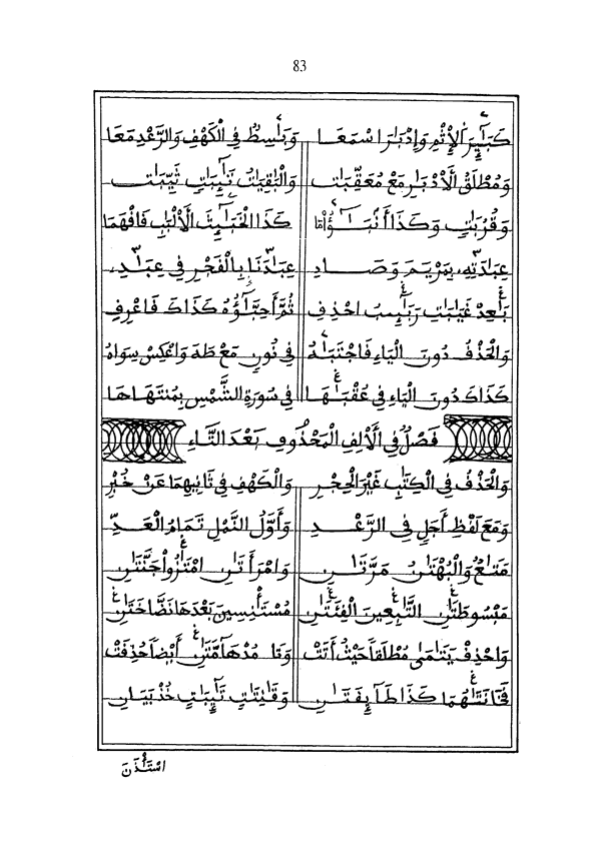 83
كَبَٰٓئِرَ اَلْإِثْمِ وَإِدْبَٰرَ اسْمَعَا وَبَٰسِطُ فِي الْكَهْفِ وَالرَّعْدِ مَعَا
وَمُطْلَقُ الْأَدْبَٰرِ مَعْ مُعَقِّبَٰتْ وَالْبَٰقِيَٰتُ تَٰٓئِبَٰتٍ ثَيِّبَٰتْ
وَقُرُبَٰتٍ وَكَذَا أَنْبَٰٓؤُا كَذَا الْخَبَٰٓئِثَ الْأَلْبَٰبِ فَافْهَمَا
عِبَٰدَتِهِ بِمَرْيَمَ وَصَادِ عِبَٰدَنَا بِالْفَجْرِ فِي عِبَٰدِ
بَٰعِدْ غَيَٰبَٰتِ رَبَٰٓئِبُ احْذِفِ ثُمَّ أَحِبَّٰٓؤُهُ كَذَاكَ فَاعْرِفِ
وَالْحَذْفُ دُونَ الْيَاءِ فَاجْتَبَٰهُ فِي نُونِ مَعْ طَهَ وَاعْكِسْ سِوَاهُ
كَذَاكَ دُونَ الْيَاءِ فِي عُقْبَٰهَا فِي سُورَةِ الشَّمْسِ بِمُنتَهَاهَا
فَصْلٌ فِي الْأَلِفِ الْمَحْذُوفِ بَعْدَ التَّاءِ
وَالْحَذْفُ فِي الْكِتَٰبِ غَيْرَ الْحِجْرِ وَالْكَهْفِ فِي ثَانِيهِمَا عَنْ خُبْرِ
وَمَعَ لَفْظِ أَجَلٍ فِي الرَّعْدِ وَأَوَّلُ النَّمْلِ تَمَامُ الْعَدِّ
مَتَٰعُ وَالْبُهْتَٰنُ مَرَّتَٰنِ وَامْرَأَتَٰنِ امْتَٰزُوا جَنَّتَٰنِ
مَبْسُوطَتَٰنِ التَّٰبِعِينَ الْفِئَتَٰنِ مُسْتَـْٔنِسِينَ بَعْدَهَا نَضَّاخَتَٰنِ
وَاحْذِفْ يَتَٰمَىٰ مُطْلَقًا حَيْثُ أَتَتْ وَتَا مُدْهَآمَّتَٰنِ أَيْضًا حُذِفَتْ
فَخَانَتَٰهُمَا كَذَا طَآئِفَتَٰنِ وَقَٰنِتَٰتٍ تَٰٓئِبَٰتٍ خُذْ بَيَانِ
اسْتَـْٔذَنَ